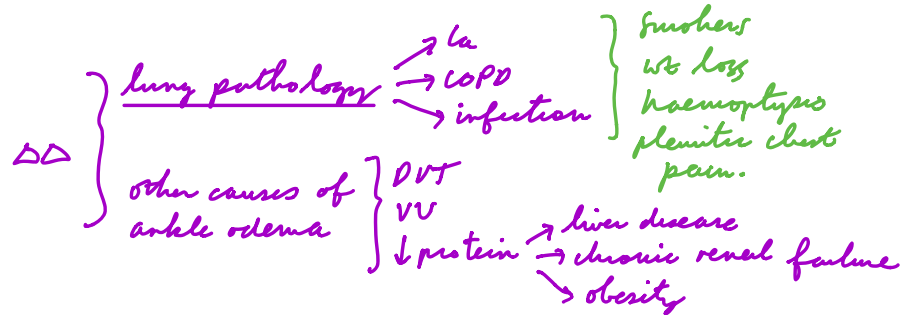 ΔΔ
lung pathology
→ Ca
→ COPD
→ infection
smokers
wt loss
haemoptysis
pleuritic chest
pain.
other causes of
ankle odema
DVT
VV
↓ protein
→ liver disease
→ chronic renal failure
→ obesity